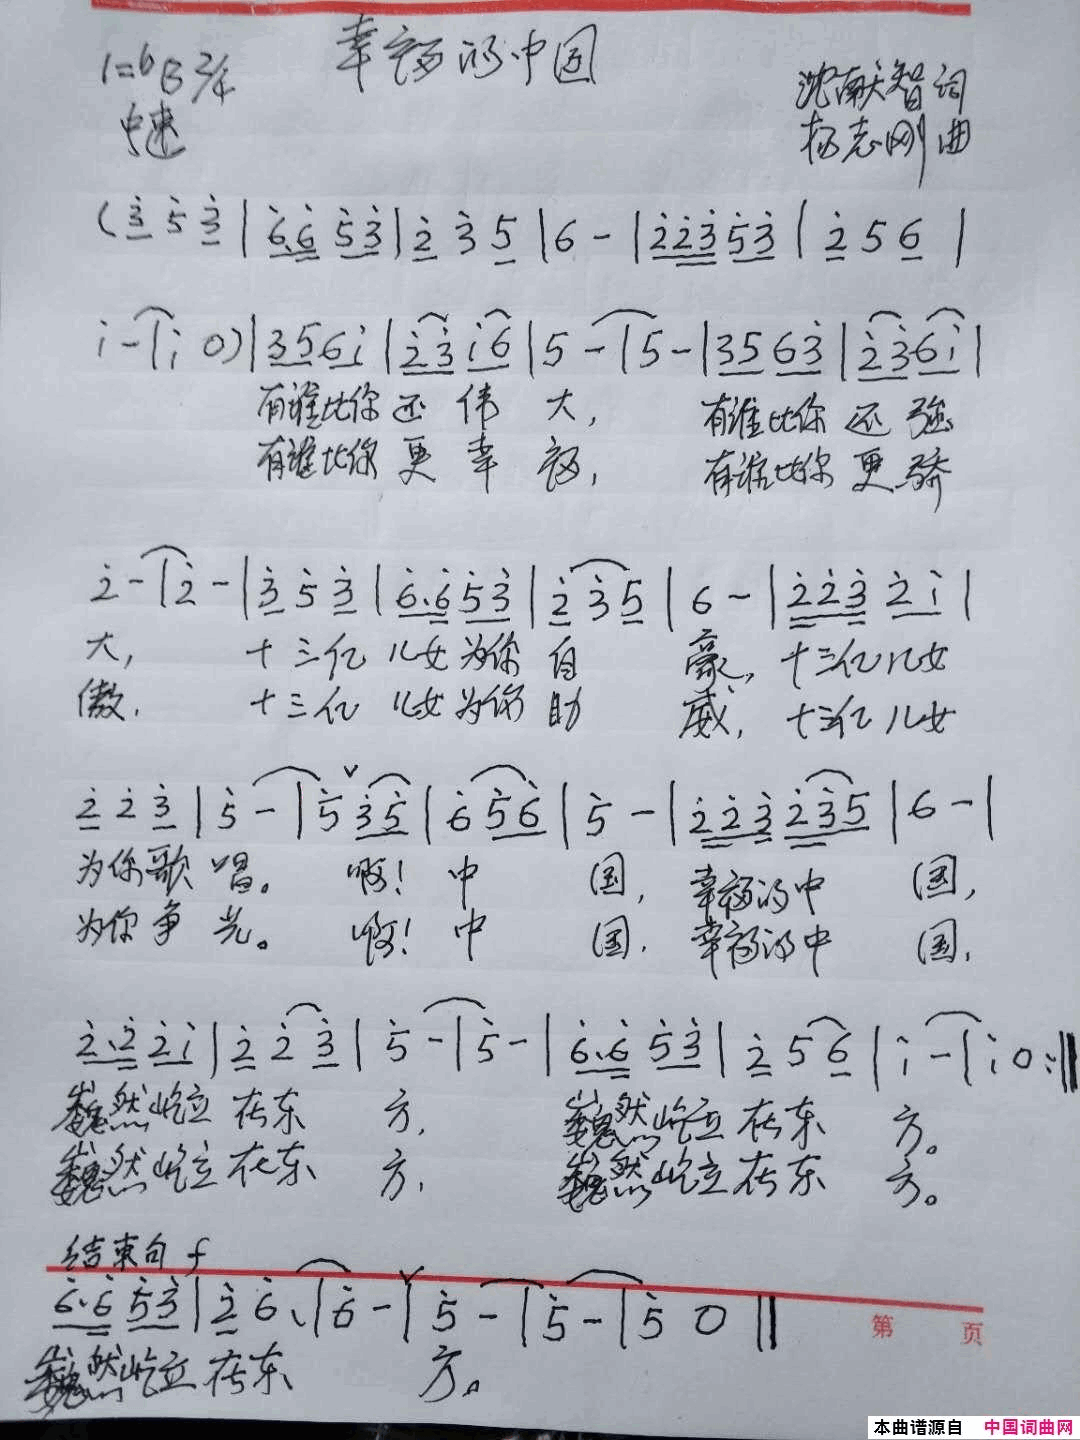 幸福的中国
1=bB 2/4
中速
沈献智词
杨志刚曲
(3 5 3 | 6.6 5 3 | 2 3 5 | 6 - | 2 2 3 5 3 | 2 5 6 |
i - | i 0) | 3 5 6 i | 2 3 i 6 | 5 - | 5 - | 3 5 6 3 | 2 3 6 i |
有谁比你还伟大, 有谁比你还强
有谁比你更幸福, 有谁比你更骄
2 - | 2 - | 3 5 3 | 6.6 5 3 | 2 3 5 | 6 - | 2 2 3 2 i |
大, 十三亿儿女为你自豪, 十三亿儿女
傲, 十三亿儿女为你助威, 十三亿儿女
2 2 3 | 5 - | 5 3 5 | 6 5 6 | 5 - | 2 2 3 2 3 5 | 6 - |
为你歌唱。 啊! 中国, 幸福的中国,
为你争光。 啊! 中国, 幸福的中国,
2.2 2 i | 2 2 3 | 5 - | 5 - | 6.6 5 3 | 2 5 6 | i - | i 0 :||
巍然屹立在东方, 巍然屹立在东方。
巍然屹立在东方, 巍然屹立在东方。
结束句 f
6.6 5 3 | 2 6. | 6 - | 5 - | 5 - | 5 0 ||
第 页
巍然屹立在东方。
本曲谱源自 中国词曲网